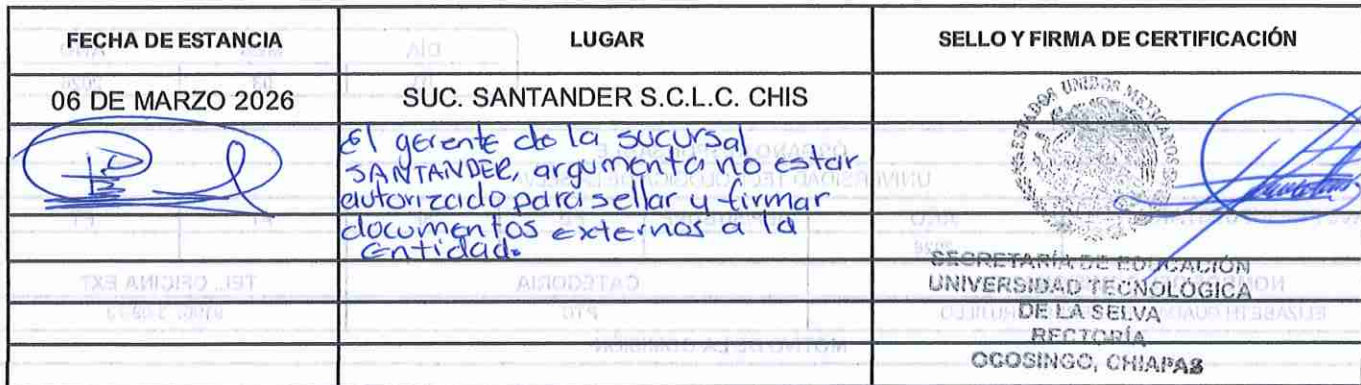 FECHA DE ESTANCIA
LUGAR
SELLO Y FIRMA DE CERTIFICACIÓN
06 DE MARZO 2026
SUC. SANTANDER S.C.L.C. CHIS
El gerente de la sucursal
SANTANDER, argumenta no estar
autorizado para sellar y firmar
documentos externos a la
Entidad.
ESTADOS UNIDOS MEXICANOS
SECRETARÍA DE EDUCACIÓN
UNIVERSIDAD TECNOLÓGICA
DE LA SELVA
RECTORÍA
OCOSINGO, CHIAPAS